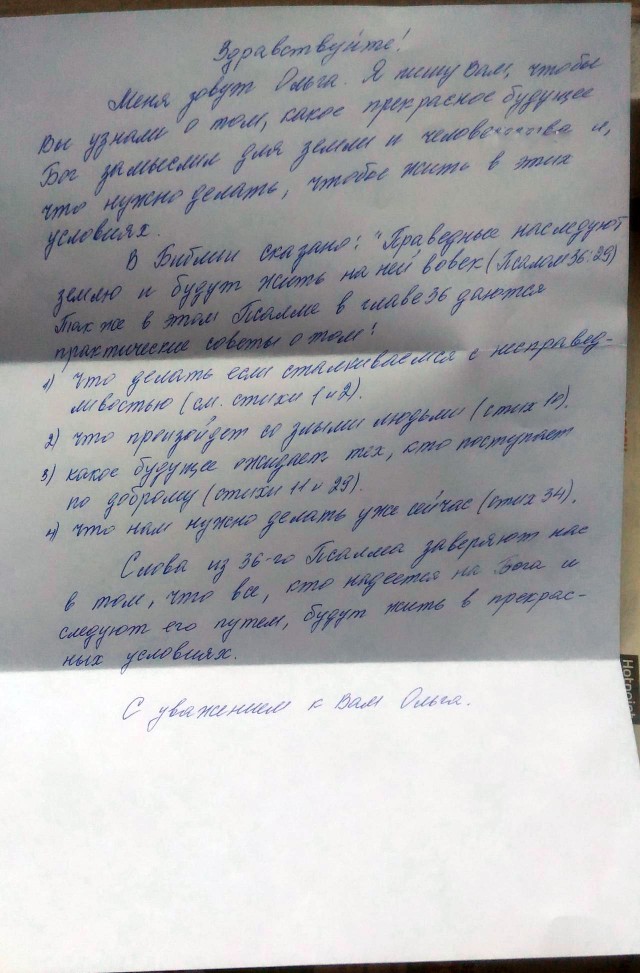 Здравствуйте!
Меня зовут Ольга. Я пишу Вам, чтобы
Вы узнали о том, какое прекрасное будущее
Бог замыслил для земли и человечества и,
что нужно делать, чтобы жить в этих
условиях.
В Библии сказано: "Праведные наследуют
землю и будут жить на ней вовек (Псалом 36:29)
Так же в этом Псалме в главе 36 даются
практические советы о том:
1) что делать если сталкиваемся с несправед-
ливостью (см. стихи 1 и 2).
2) что произойдет со злыми людьми (стих 10).
3) какое будущее ожидает тех, кто поступает
по доброму (стихи 11 и 29).
4) что нам нужно делать уже сейчас (стих 34).
Слова из 36-го Псалма заверяют нас
в том, что все, кто надеется на Бога и
следуют его путем, будут жить в прекрас-
ных условиях.
С уважением к Вам Ольга.
Hotpoint